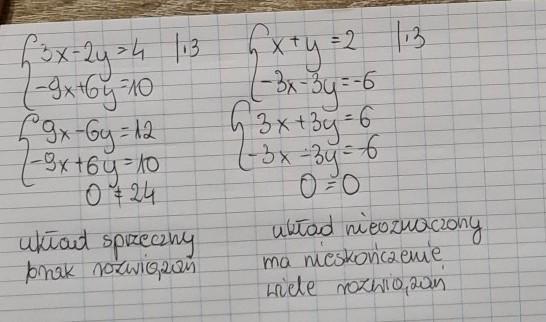 3x-2y=4 |·3
-9x+6y=10
9x-6y=12
-9x+6y=10
0≠24
układ sprzeczny
brak rozwiązań
x+y=2 |·3
-3x-3y=-6
3x+3y=6
-3x-3y=-6
0=0
układ nieoznaczony
ma nieskończenie
wiele rozwiązań